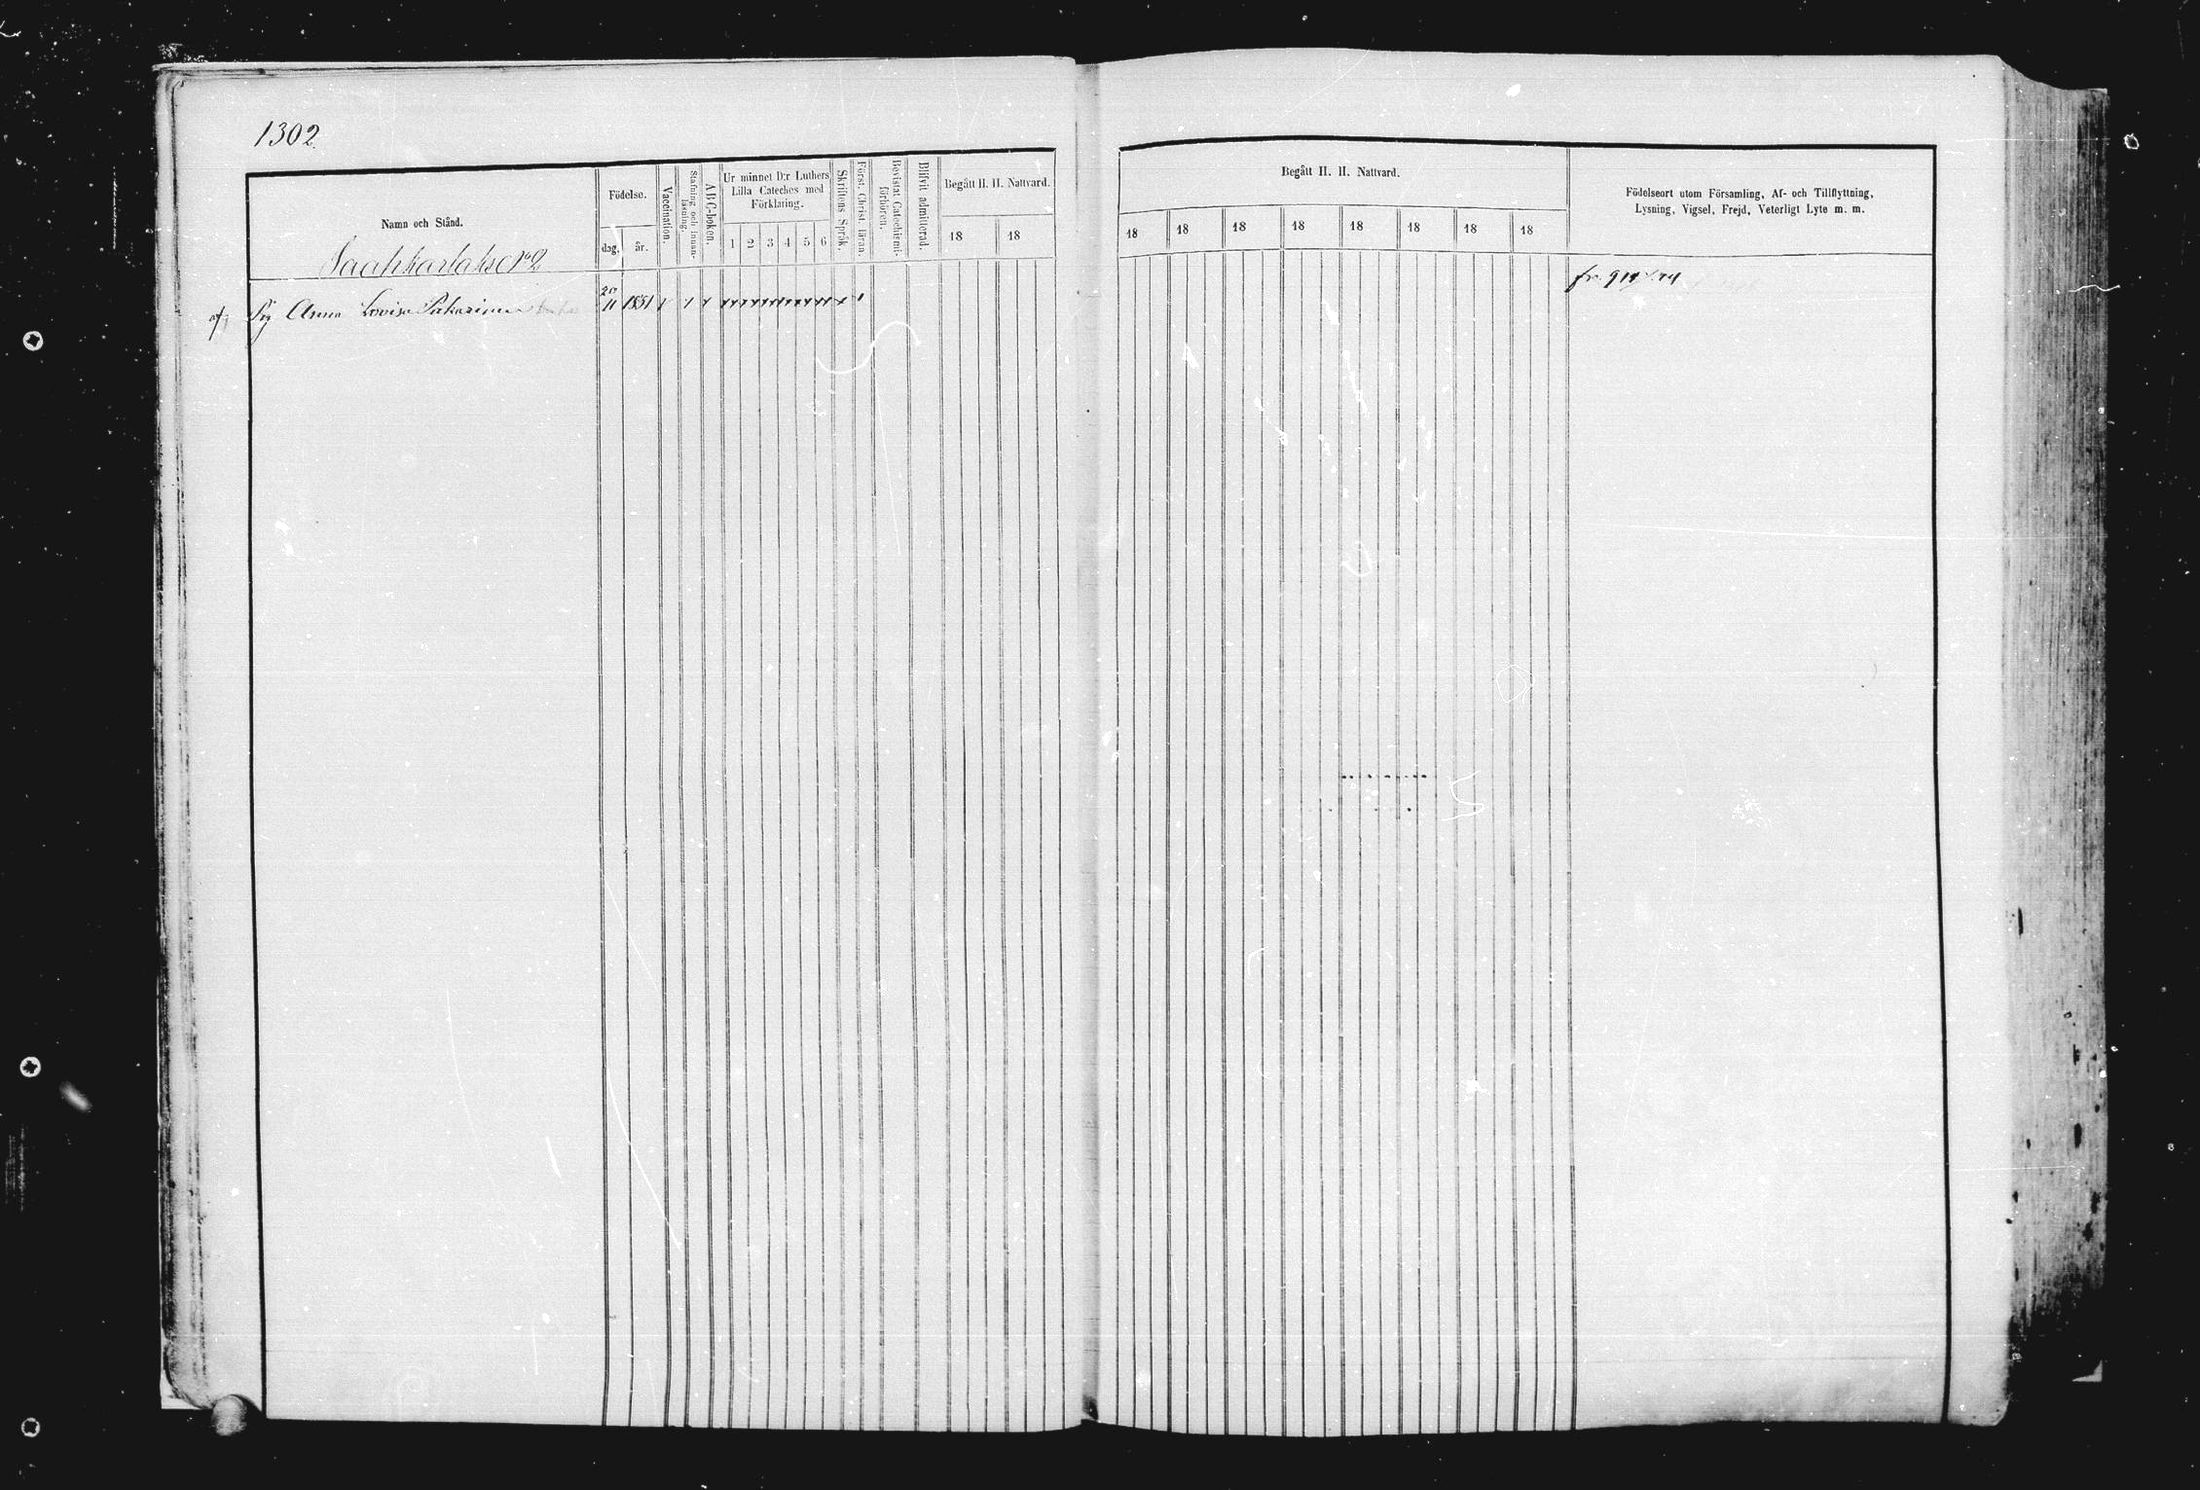 1302
Namn och Stånd.
Födelse.
dag.
år.
Vaccination.
Stafning och Innanläsning.
ABC-boken.
Ur minnet D:r Luthers
Lilla Cateches med
Förklaring.
1 2 3 4 5 6
Skriftens Språk.
Först. Christ. läran.
Bevistat Catechismi-
förhören.
Blifvit admitterad.
Begått H. H. Nattvard.
18 18
N:o 2
Pig Anna Lovisa Pakarinen
20
11 1851
Begått H. H. Nattvard.
18 18 18 18 18 18 18 18
Födelseort utom Församling, Af- och Tillflyttning,
Lysning, Vigsel, Frejd, Veterligt Lyte m. m.
fr.